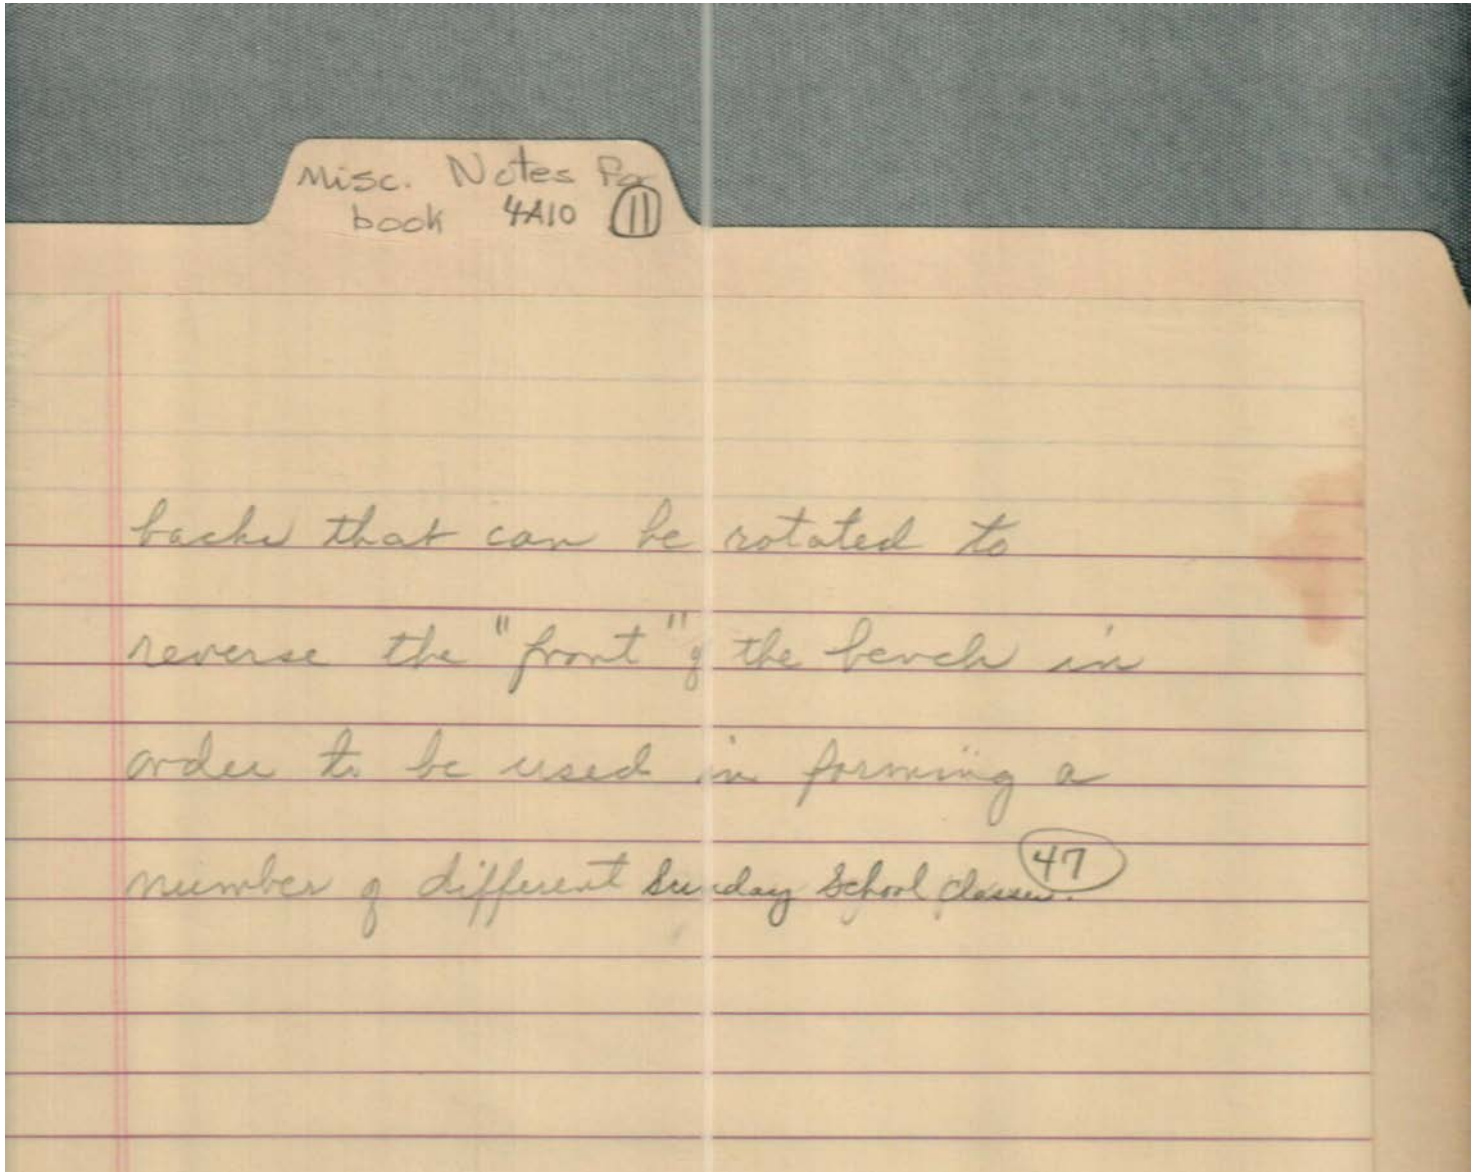 Misc. Notes for
book 4A10 11
backs that can be rotated to
reverse the "front" of the bench in
order to be used in forming a
47
number of different Sunday School classes.